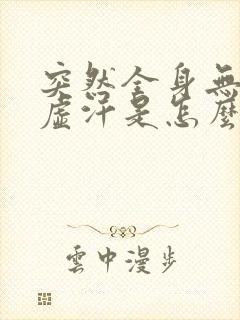 突然全身無
虛汗是怎麼
雲中漫步